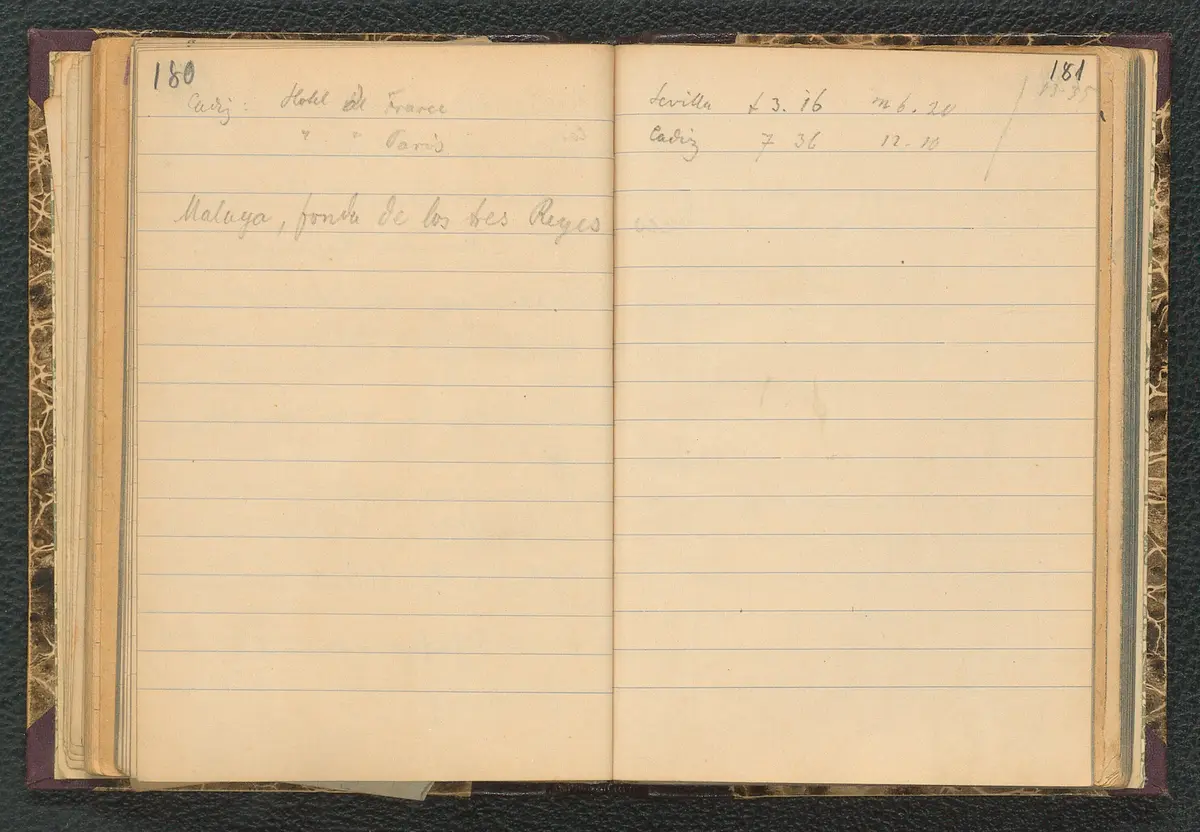 180
Cadiz: Hotel de France
" " Paris
Malaga, fonda de los tres Reyes
181
Sevilla 3.16 m 6.20
Cadiz 7 36 12-10